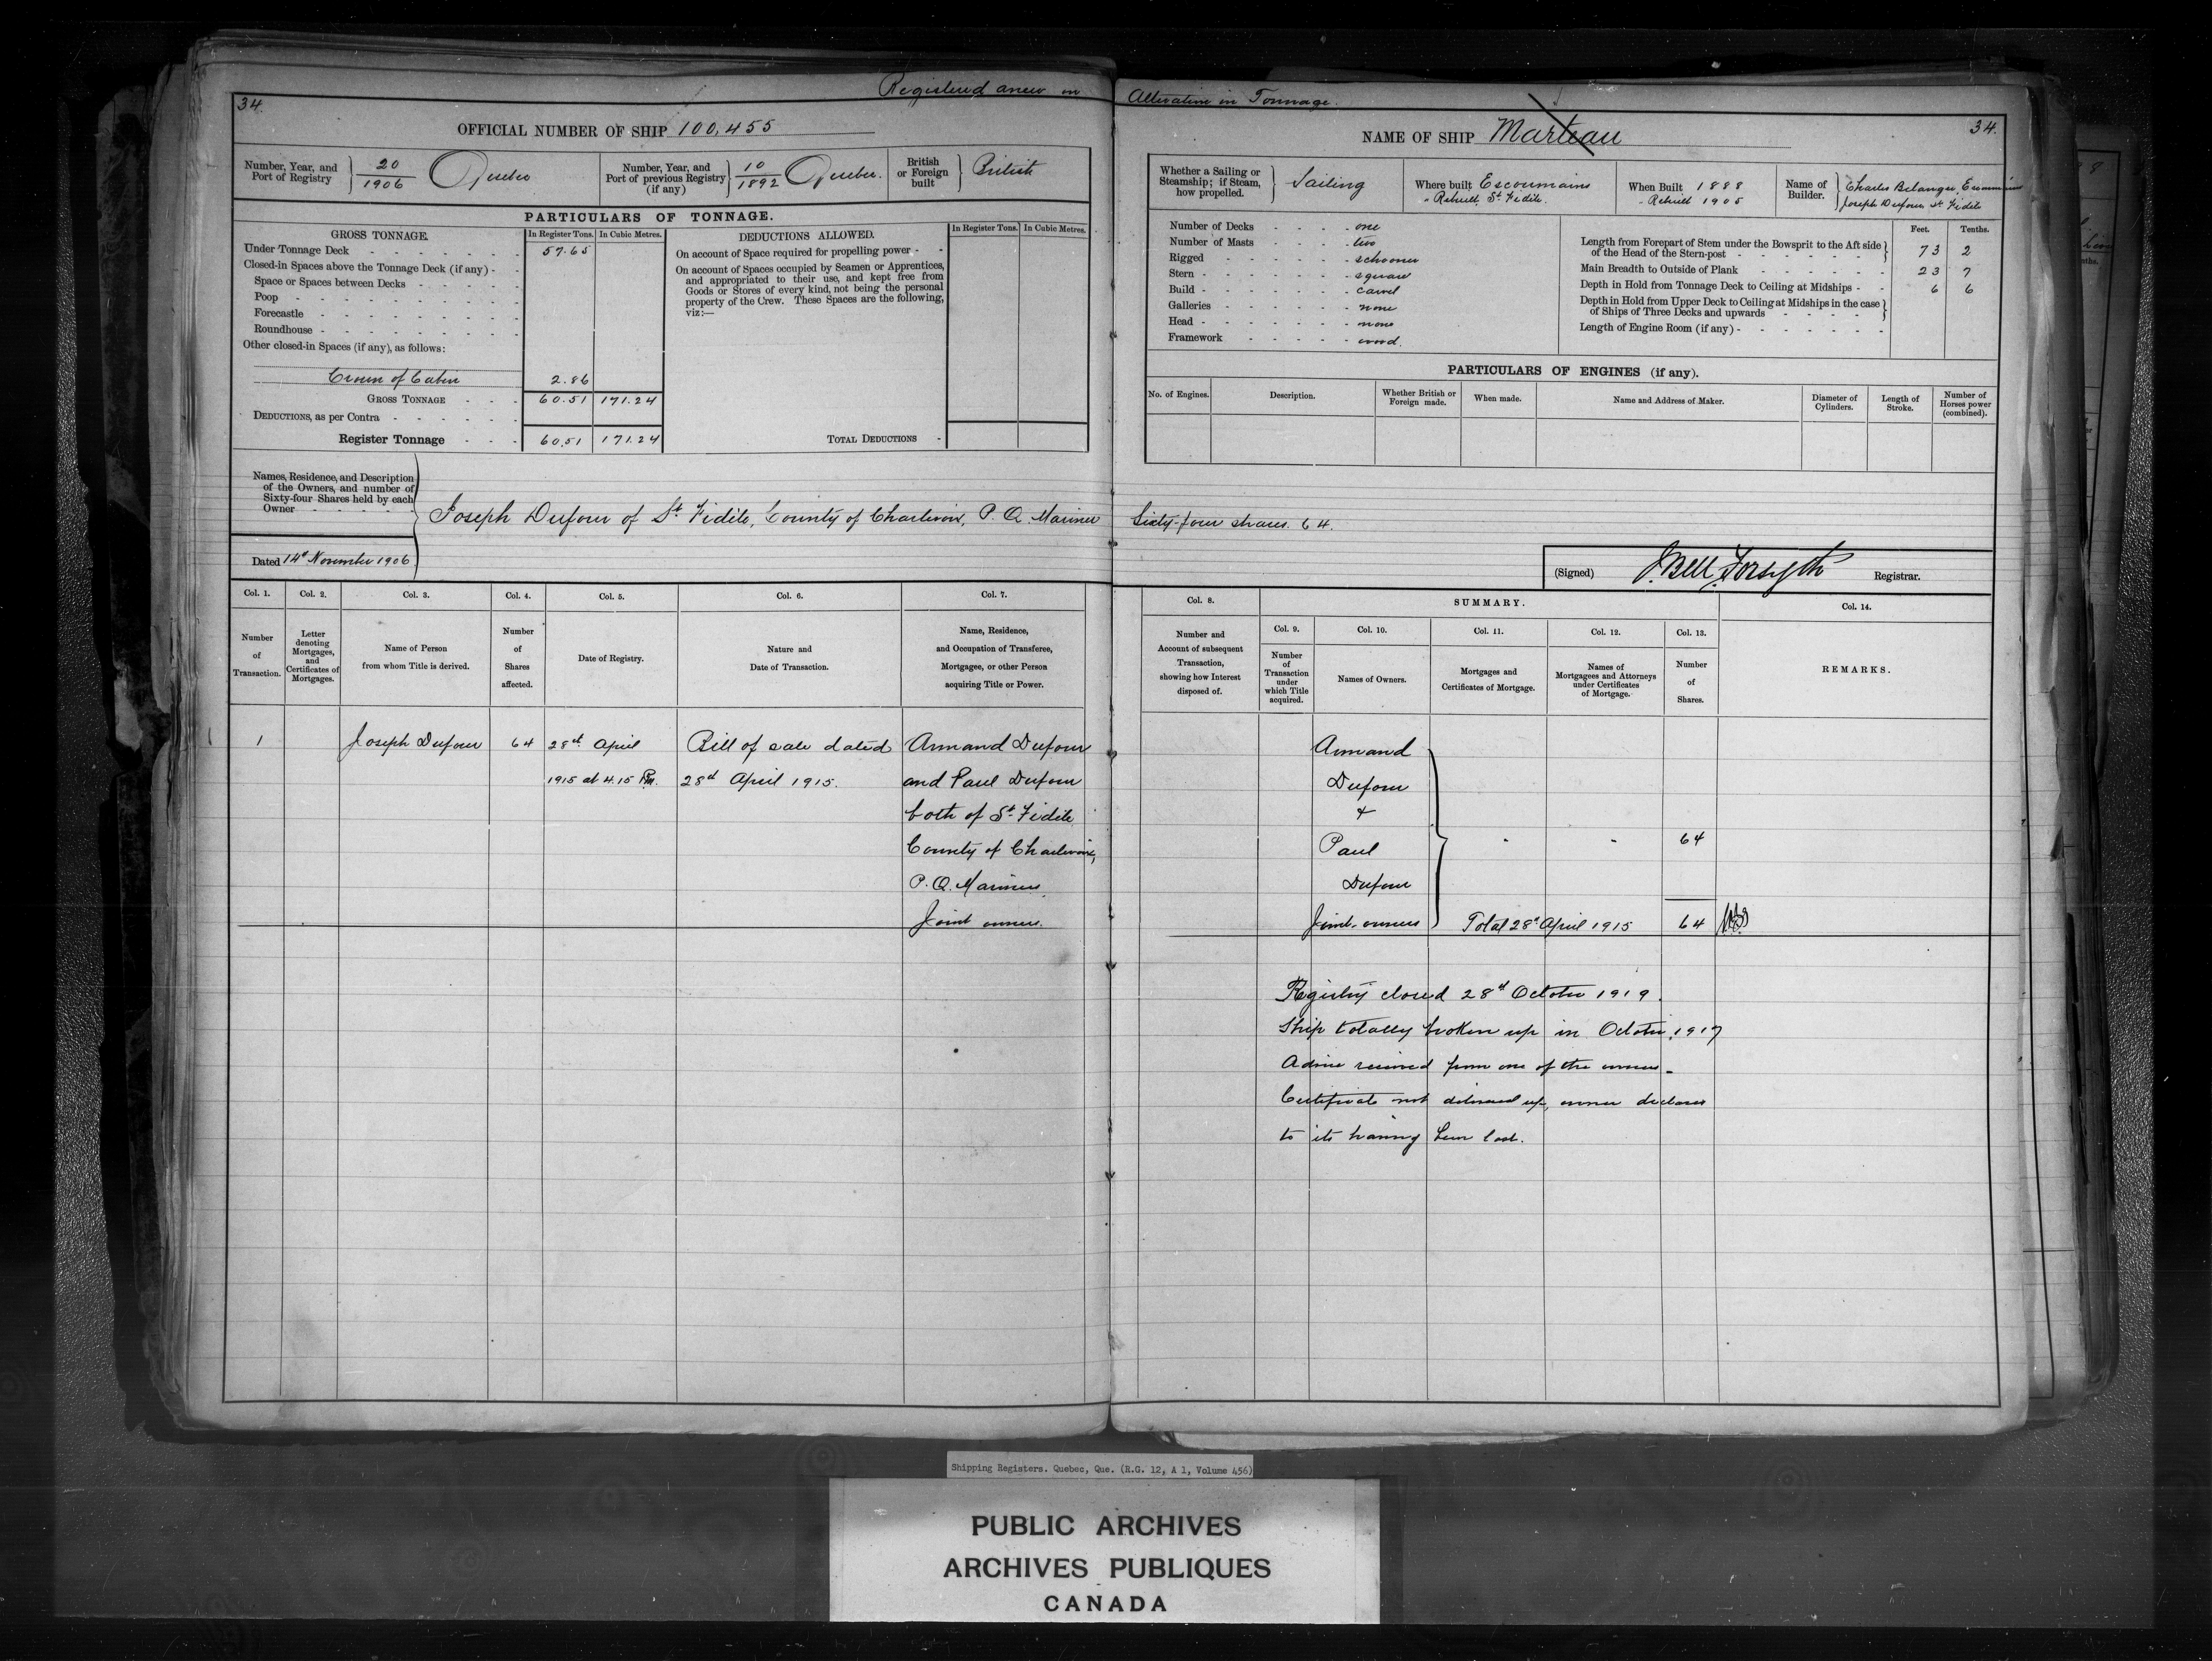 Registered anew on Alteration in Tonnage.
34.
OFFICIAL NUMBER OF SHIP 100,455
Number, Year, and Port of Registry } 20/1906 Quebec
Number, Year, and Port of previous Registry (if any) } 10/1892 Quebec.
British or Foreign built } British
PARTICULARS OF TONNAGE.
GROSS TONNAGE. In Register Tons. In Cubic Metres.
Under Tonnage Deck 57.65
Closed-in Spaces above the Tonnage Deck (if any) -
Space or Spaces between Decks
Poop
Forecastle
Roundhouse
Other closed-in Spaces (if any), as follows:
Crown of Cabin 2.86
GROSS TONNAGE 60.51 171.24
DEDUCTIONS, as per Contra
Register Tonnage 60.51 171.24
DEDUCTIONS ALLOWED. In Register Tons. In Cubic Metres.
On account of Space required for propelling power -
On account of Spaces occupied by Seamen or Apprentices,
and appropriated to their use, and kept free from
Goods or Stores of every kind, not being the personal
property of the Crew. These Spaces are the following,
viz:—
TOTAL DEDUCTIONS -
Names, Residence, and Description
of the Owners, and number of
Sixty-four Shares held by each
Owner
Joseph Dufour of St. Fidèle, County of Charlevoix, P. Q. Mariner Sixty-four shares. 64.
Dated 14th November 1906
Col. 1. Col. 2. Col. 3. Col. 4. Col. 5. Col. 6. Col. 7.
Number of Transaction.
Letter denoting Mortgages, and Certificates of Mortgages.
Name of Person from whom Title is derived.
Number of Shares affected.
Date of Registry.
Nature and Date of Transaction.
Name, Residence, and Occupation of Transferee, Mortgagee, or other Person acquiring Title or Power.
1 Joseph Dufour 64 28th April Bill of sale dated Armand Dufour
1915 at 4.15 Pm. 28th April 1915. and Paul Dufour
both of St. Fidèle
County of Charlevoix,
P. Q. Mariners
Joint owners.
NAME OF SHIP Marteau 34.
Whether a Sailing or Steamship; if Steam, how propelled. } Sailing
Where built Escoumains
" Rebuilt, St. Fidèle.
When Built 1888
" Rebuilt 1905
Name of Builder. } Charles Belanger, Escoumains
Joseph Dufour St. Fidèle
Number of Decks one
Number of Masts two
Rigged schooner
Stern square
Build carvel
Galleries none
Head none
Framework wood.
Feet. Tenths.
Length from Forepart of Stem under the Bowsprit to the Aft side
of the Head of the Stern-post 73 2
Main Breadth to Outside of Plank 23 7
Depth in Hold from Tonnage Deck to Ceiling at Midships 6 6
Depth in Hold from Upper Deck to Ceiling at Midships in the case
of Ships of Three Decks and upwards
Length of Engine Room (if any)
PARTICULARS OF ENGINES (if any).
No. of Engines. Description. Whether British or Foreign made. When made. Name and Address of Maker. Diameter of Cylinders. Length of Stroke. Number of Horses power (combined).
(Signed) J. Bell Forsyth Registrar.
Col. 8. SUMMARY. Col. 14.
Col. 9. Col. 10. Col. 11. Col. 12. Col. 13.
Number and Account of subsequent Transaction, showing how Interest disposed of.
Number of Transaction under which Title acquired.
Names of Owners.
Mortgages and Certificates of Mortgage.
Names of Mortgagees and Attorneys under Certificates of Mortgage.
Number of Shares.
REMARKS.
Armand
Dufour
&
Paul - - 64
Dufour
Joint owners Total 28th April 1915 64
Registry closed 28th October 1919.
Ship totally broken up in October 1917
Advice received from one of the owners -
Certificate not delivered up, owner declares
to its having been lost.
Shipping Registers. Quebec, Que. (R.G. 12, A 1, Volume 456)
PUBLIC ARCHIVES
ARCHIVES PUBLIQUES
CANADA